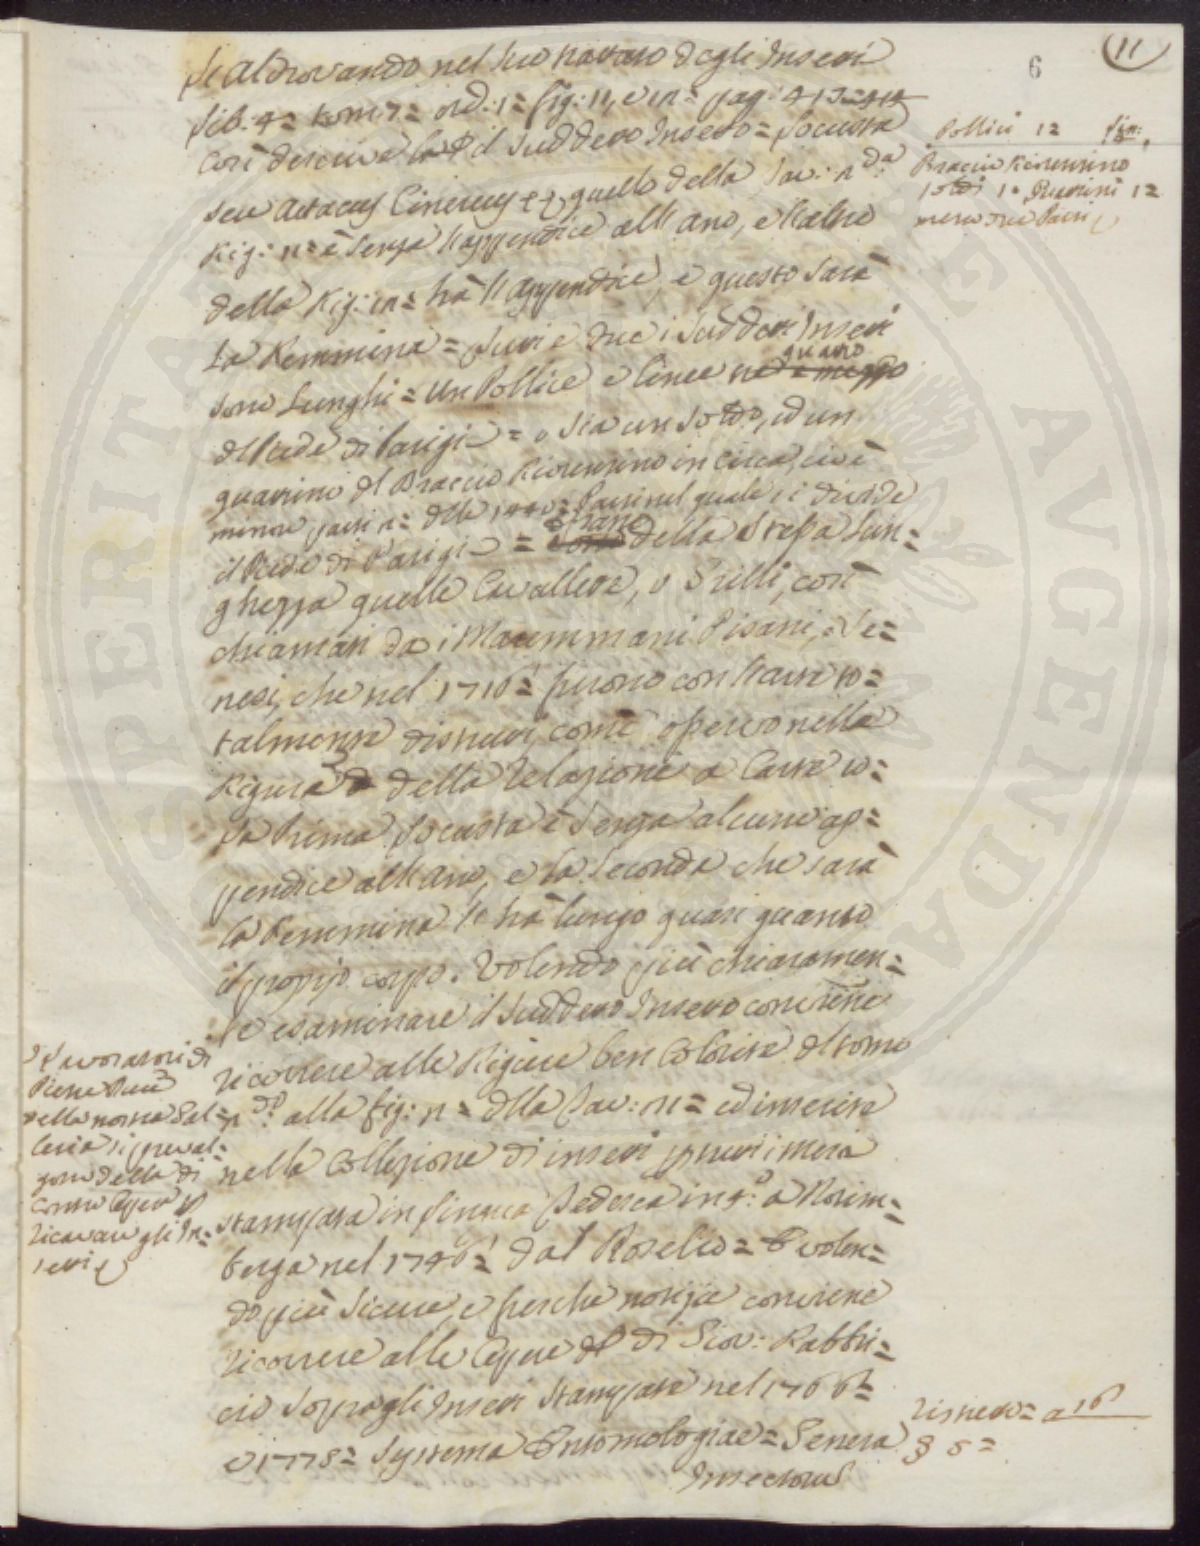 6
11
se Aldrovando nel suo trattato degli Insetti
Lib: 4= tom: 7= ord: 1= fig: 11, e 12= pag: 413=414
Così descrive il suddetto Insetto= Locusta
seu Attacus Cinereus quello della Tav: n
Fig: 11= è senza l'appendice all'ano, e l'altro
della Fig: 12= hà l'appendice, e questo sarà
la Femmina = tutti e due i suddetti Insetti
sono Lunghi= un Pollice e linee tre e mezzo
quattro
del Piede di Parigi= o sia un soldo, ed un
quattrino del Braccio Fiorentino in circa, cioè
meno parti delle 1440= Parti nel quale si divide
il Piede di Parigi= erano della stessa lun=
ghezza quelle Cavallette, o Grilli, così
chiamati da i Maremmani Pisani, e Se=
nesi, che nel 1716= furono con l'arte to=
talmente distrutti, come osservo nella
Figura 3 della Relazione a Carte 10:
La Prima Locusta è senza alcuna ap=
pendice all'ano, e la seconda che sarà
la Femmina la hà lunga quasi quanto
il proprio corpo. Volendo più chiaramen=
te esaminare il suddetto Insetto conviene
ricorrere alle Figure ben Colorite del tomo
alla fig: n= della Tav: = ed inserite
nella Collezione di insetti
stampata in lingua Tedesca in 4.° a Norim=
berga nel 1746= dal Roselio= E volen=
do più sicure, e fresche notizie conviene
ricorrere alle Opere di Giov: Fabbri=
cio sopra gli Insetti stampate nel 1766=
e 1775= Systema Entomologiae= Genera
Insectorum
Pollici 12 Lin:
Braccio Fiorentino
soldi 1. Quattrini 12
meno due Parti
I Lavoratori di
Pietre Dure
della nostra Gal=
leria si preval=
gono della di
Contro Opera p
ricavare gli In=
setti
Rismetto= a 16
§ 5=